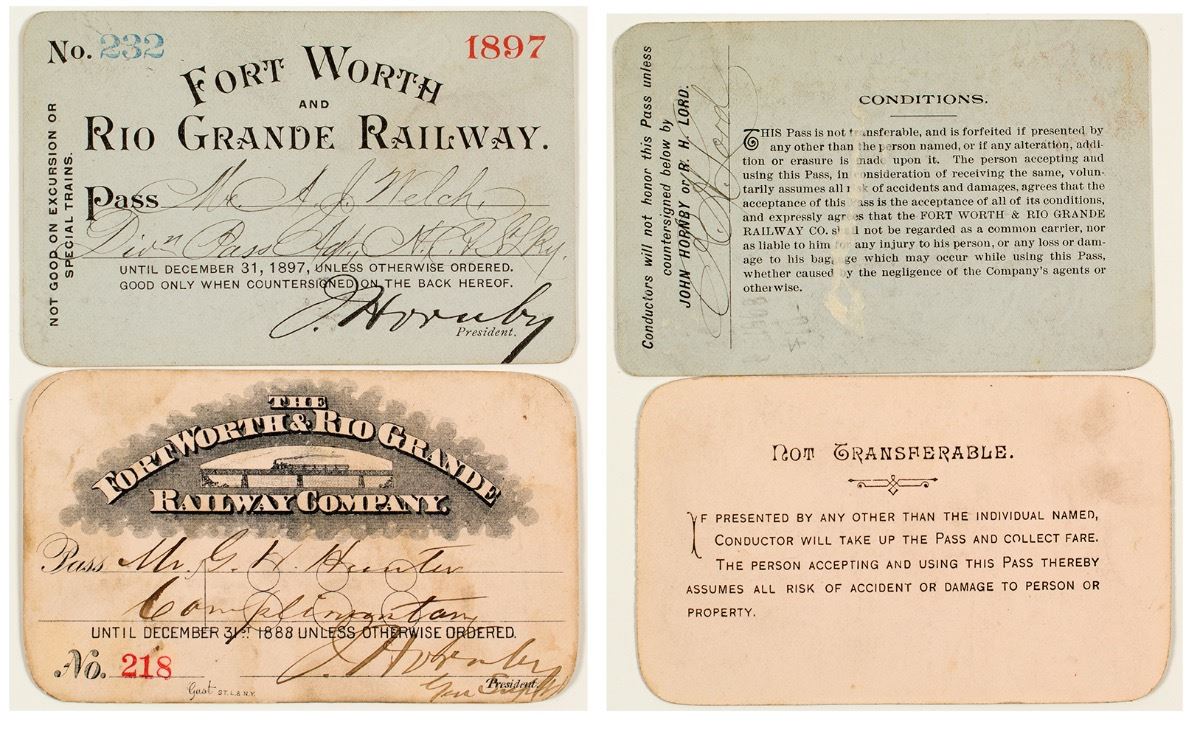 No. 232
1897
FORT WORTH
AND
RIO GRANDE RAILWAY.
Pass Mr. A. J. Welch,
Divn Pass Agt, N. C & St L Ry.
UNTIL DECEMBER 31, 1897, UNLESS OTHERWISE ORDERED.
GOOD ONLY WHEN COUNTERSIGNED ON THE BACK HEREOF.
J. Hornby
President.
NOT GOOD ON EXCURSION OR
SPECIAL TRAINS.
Conductors will not honor this Pass unless
countersigned below by
JOHN HORNBY or R. H. LORD.
Lord
CONDITIONS.
THIS Pass is not transferable, and is forfeited if presented by
any other than the person named, or if any alteration, addi-
tion or erasure is made upon it. The person accepting and
using this Pass, in consideration of receiving the same, volun-
tarily assumes all risk of accidents and damages, agrees that the
acceptance of this Pass is the acceptance of all of its conditions,
and expressly agrees that the FORT WORTH & RIO GRANDE
RAILWAY CO. shall not be regarded as a common carrier, nor
as liable to him for any injury to his person, or any loss or dam-
age to his baggage which may occur while using this Pass,
whether caused by the negligence of the Company's agents or
otherwise.
THE
FORT WORTH & RIO GRANDE
RAILWAY COMPANY.
Pass Mr. G. H. Hunter
Complimentary
UNTIL DECEMBER 31ST 1888 UNLESS OTHERWISE ORDERED.
No. 218
J. Hornby
President.
Gen Supt
Gast ST. L. & N.Y.
NOT TRANSFERABLE.
IF PRESENTED BY ANY OTHER THAN THE INDIVIDUAL NAMED,
CONDUCTOR WILL TAKE UP THE PASS AND COLLECT FARE.
THE PERSON ACCEPTING AND USING THIS PASS THEREBY
ASSUMES ALL RISK OF ACCIDENT OR DAMAGE TO PERSON OR
PROPERTY.